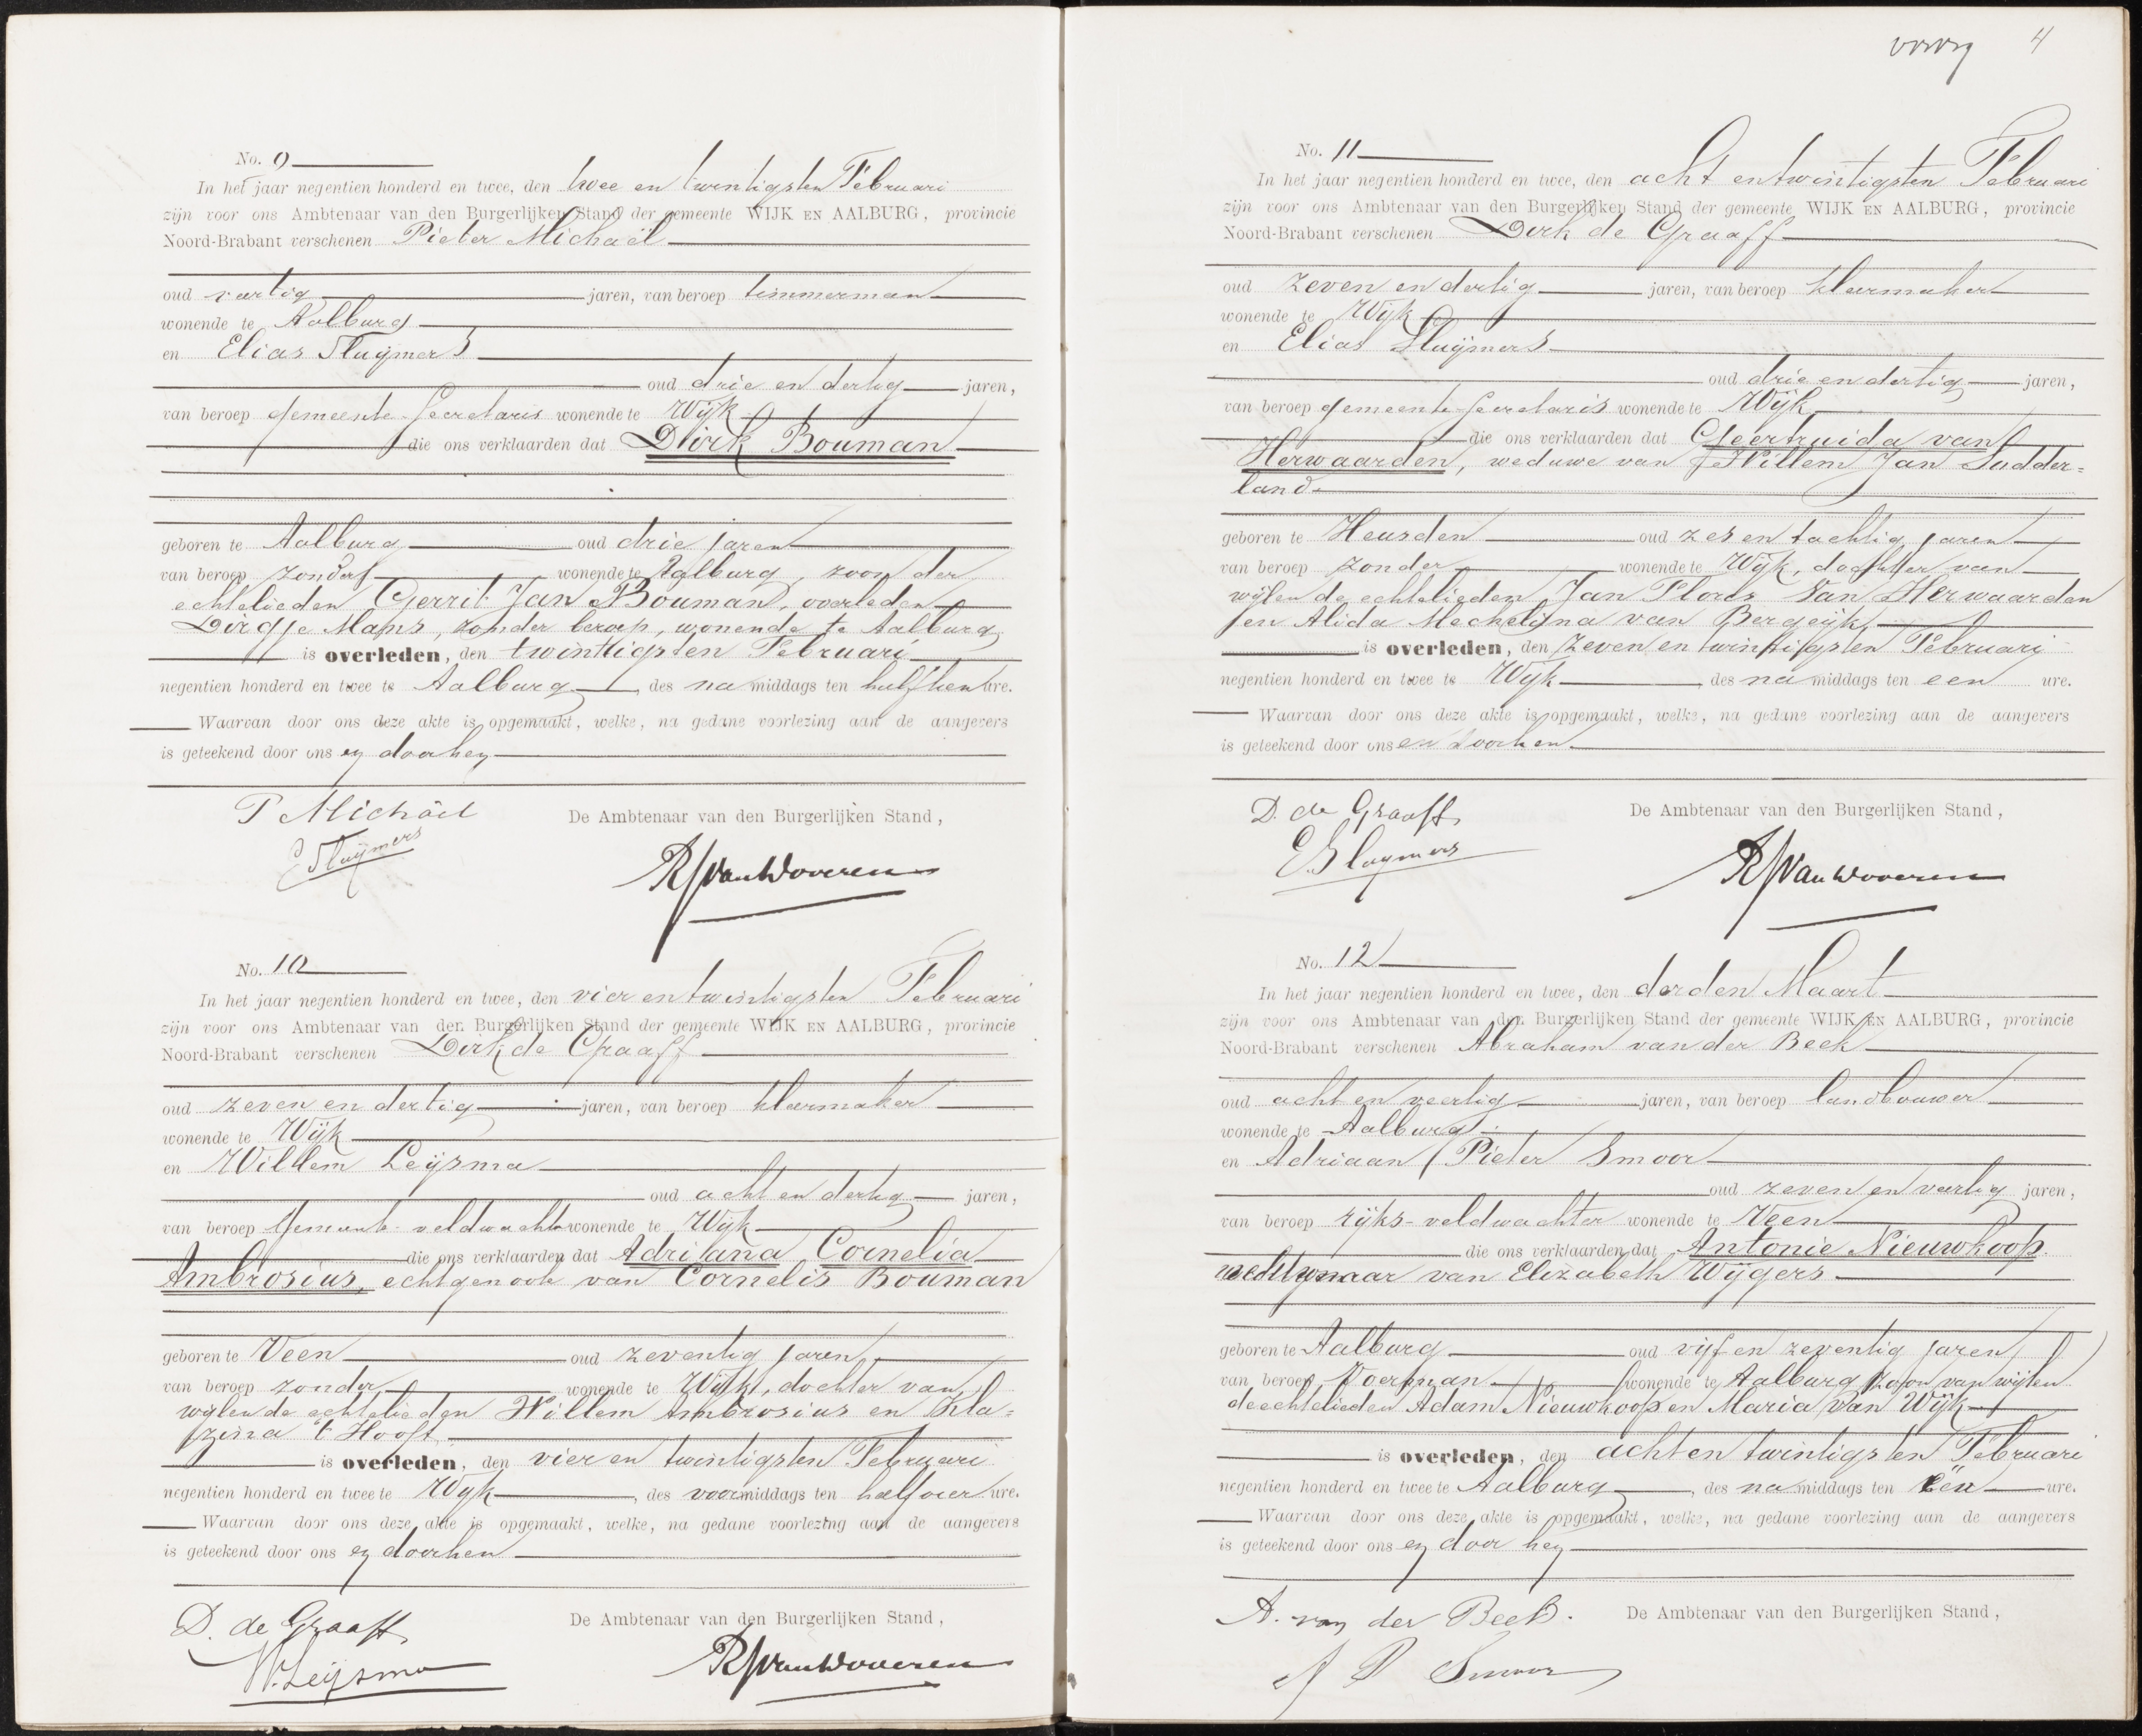 No. 9
In het jaar negentien honderd en twee, den twee en twintigsten Februari
zijn voor ons Ambtenaar van den Burgerlijken Stand der gemeente WIJK EN AALBURG, provincie
Noord-Brabant verschenen Pieter Michaël
oud veertig jaren, van beroep timmerman
wonende te Aalburg
en Elias Sluijmers
oud drie en dertig jaren,
van beroep gemeente-Secretaris wonende te Wijk
die ons verklaarden dat Dirk Bouman
geboren te Aalburg oud drie jaren
van beroep zonder wonende te Aalburg, zoon der
echtelieden Gerrit Jan Bouman, overleden
Dirgje Mans, zonder beroep, wonende te Aalburg
is overleden, den twintigsten Februari
negentien honderd en twee te Aalburg, des namiddags ten half tien ure.
Waarvan door ons deze akte is opgemaakt, welke, na gedane voorlezing aan de aangevers
is geteekend door ons en door hen
P Michaël
De Ambtenaar van den Burgerlijken Stand,
E Sluijmers
RJ van Woveren
No. 10
In het jaar negentien honderd en twee, den vier en twintigsten Februari
zijn voor ons Ambtenaar van den Burgerlijken Stand der gemeente WIJK EN AALBURG, provincie
Noord-Brabant verschenen Dirk de Graaff
oud zeven en dertig jaren, van beroep kleermaker
wonende te Wijk
en Willem Leijsma
oud acht en dertig jaren,
van beroep Gemeente-veldwachter wonende te Wijk
die ons verklaarden dat Adriana Cornelia
Ambrosius, echtgenoote van Cornelis Bouman
geboren te Veen oud zeventig jaren,
van beroep zonder wonende te Wijk, dochter van
wijlen de echtelieden Willem Ambrosius en Kla=
zina 't Hooft
is overleden, den vier en twintigsten Februari
negentien honderd en twee te Wijk, des voormiddags ten half vier ure.
Waarvan door ons deze akte is opgemaakt, welke, na gedane voorlezing aan de aangevers
is geteekend door ons en door hen
D. de Graaff
De Ambtenaar van den Burgerlijken Stand,
W. Leijsma
RJ van Woveren
4
No. 11
In het jaar negentien honderd en twee, den acht en twintigsten Februari
zijn voor ons Ambtenaar van den Burgerlijken Stand der gemeente WIJK EN AALBURG, provincie
Noord-Brabant verschenen Dirk de Graaff
oud zeven en dertig jaren, van beroep kleermaker
wonende te Wijk
en Elias Sluijmers
oud drie en dertig jaren,
van beroep gemeente-Secretaris wonende te Wijk
die ons verklaarden dat Geertruida van
Herwaarden, weduwe van Willem Jan Sudder=
land
geboren te Heusden oud zes en tachtig jaren
van beroep zonder wonende te Wijk, dochter van
wijlen de echtelieden Jan Floris van Herwaarden
en Alida Mechelina van Bergeijk
is overleden, den zeven en twintigsten Februari
negentien honderd en twee te Wijk, des namiddags ten een ure.
Waarvan door ons deze akte is opgemaakt, welke, na gedane voorlezing aan de aangevers
is geteekend door ons en door hen
D. de Graaff
De Ambtenaar van den Burgerlijken Stand,
E. Sluijmers
RJ van Woveren
No. 12
In het jaar negentien honderd en twee, den derden Maart
zijn voor ons Ambtenaar van den Burgerlijken Stand der gemeente WIJK EN AALBURG, provincie
Noord-Brabant verschenen Abraham van der Beek
oud acht en veertig jaren, van beroep landbouwer
wonende te Aalburg
en Adriaan Pieter Smoor
oud zeven en veertig jaren,
van beroep rijks-veldwachter wonende te Veen
die ons verklaarden dat Antonie Nieuwkoop
weduwnaar van Elizabeth Wijgers
geboren te Aalburg oud vijf en zeventig jaren
van beroep Voerman wonende te Aalburg zoon van wijlen
de echtelieden Adam Nieuwkoop en Maria van Wijk
is overleden, den acht en twintigsten Februari
negentien honderd en twee te Aalburg, des namiddags ten één ure.
Waarvan door ons deze akte is opgemaakt, welke, na gedane voorlezing aan de aangevers
is geteekend door ons en door hen
A. van der Beek.
De Ambtenaar van den Burgerlijken Stand,
A P Smoor